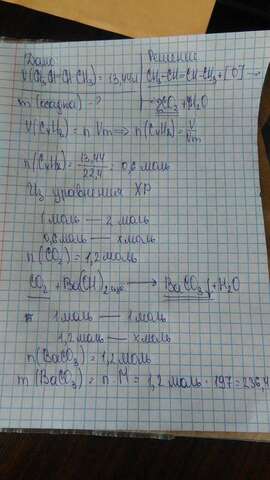 Дано
Решение
V(CH₃CH=CH-CH₃)=13,44л
CH₃-CH=CH-CH₃+[O]→
m(осадка)-?
→ CO₂+H₂O
V(CₙH₂)=n·Vm⟹n(CₙH₂)=V/Vm
n(CₙH₂)=13,44/22,4=0,6 моль
Из уравнения ХР
1 моль — 2 моль
0,6 моль — x моль
n(CO₂)=1,2 моль
CO₂+Ba(OH)₂ → BaCO₃↓+H₂O
1 моль — 1 моль
1,2 моль — x моль
n(BaCO₃)=1,2 моль
m(BaCO₃)=n·M=1,2 моль·197=236,4